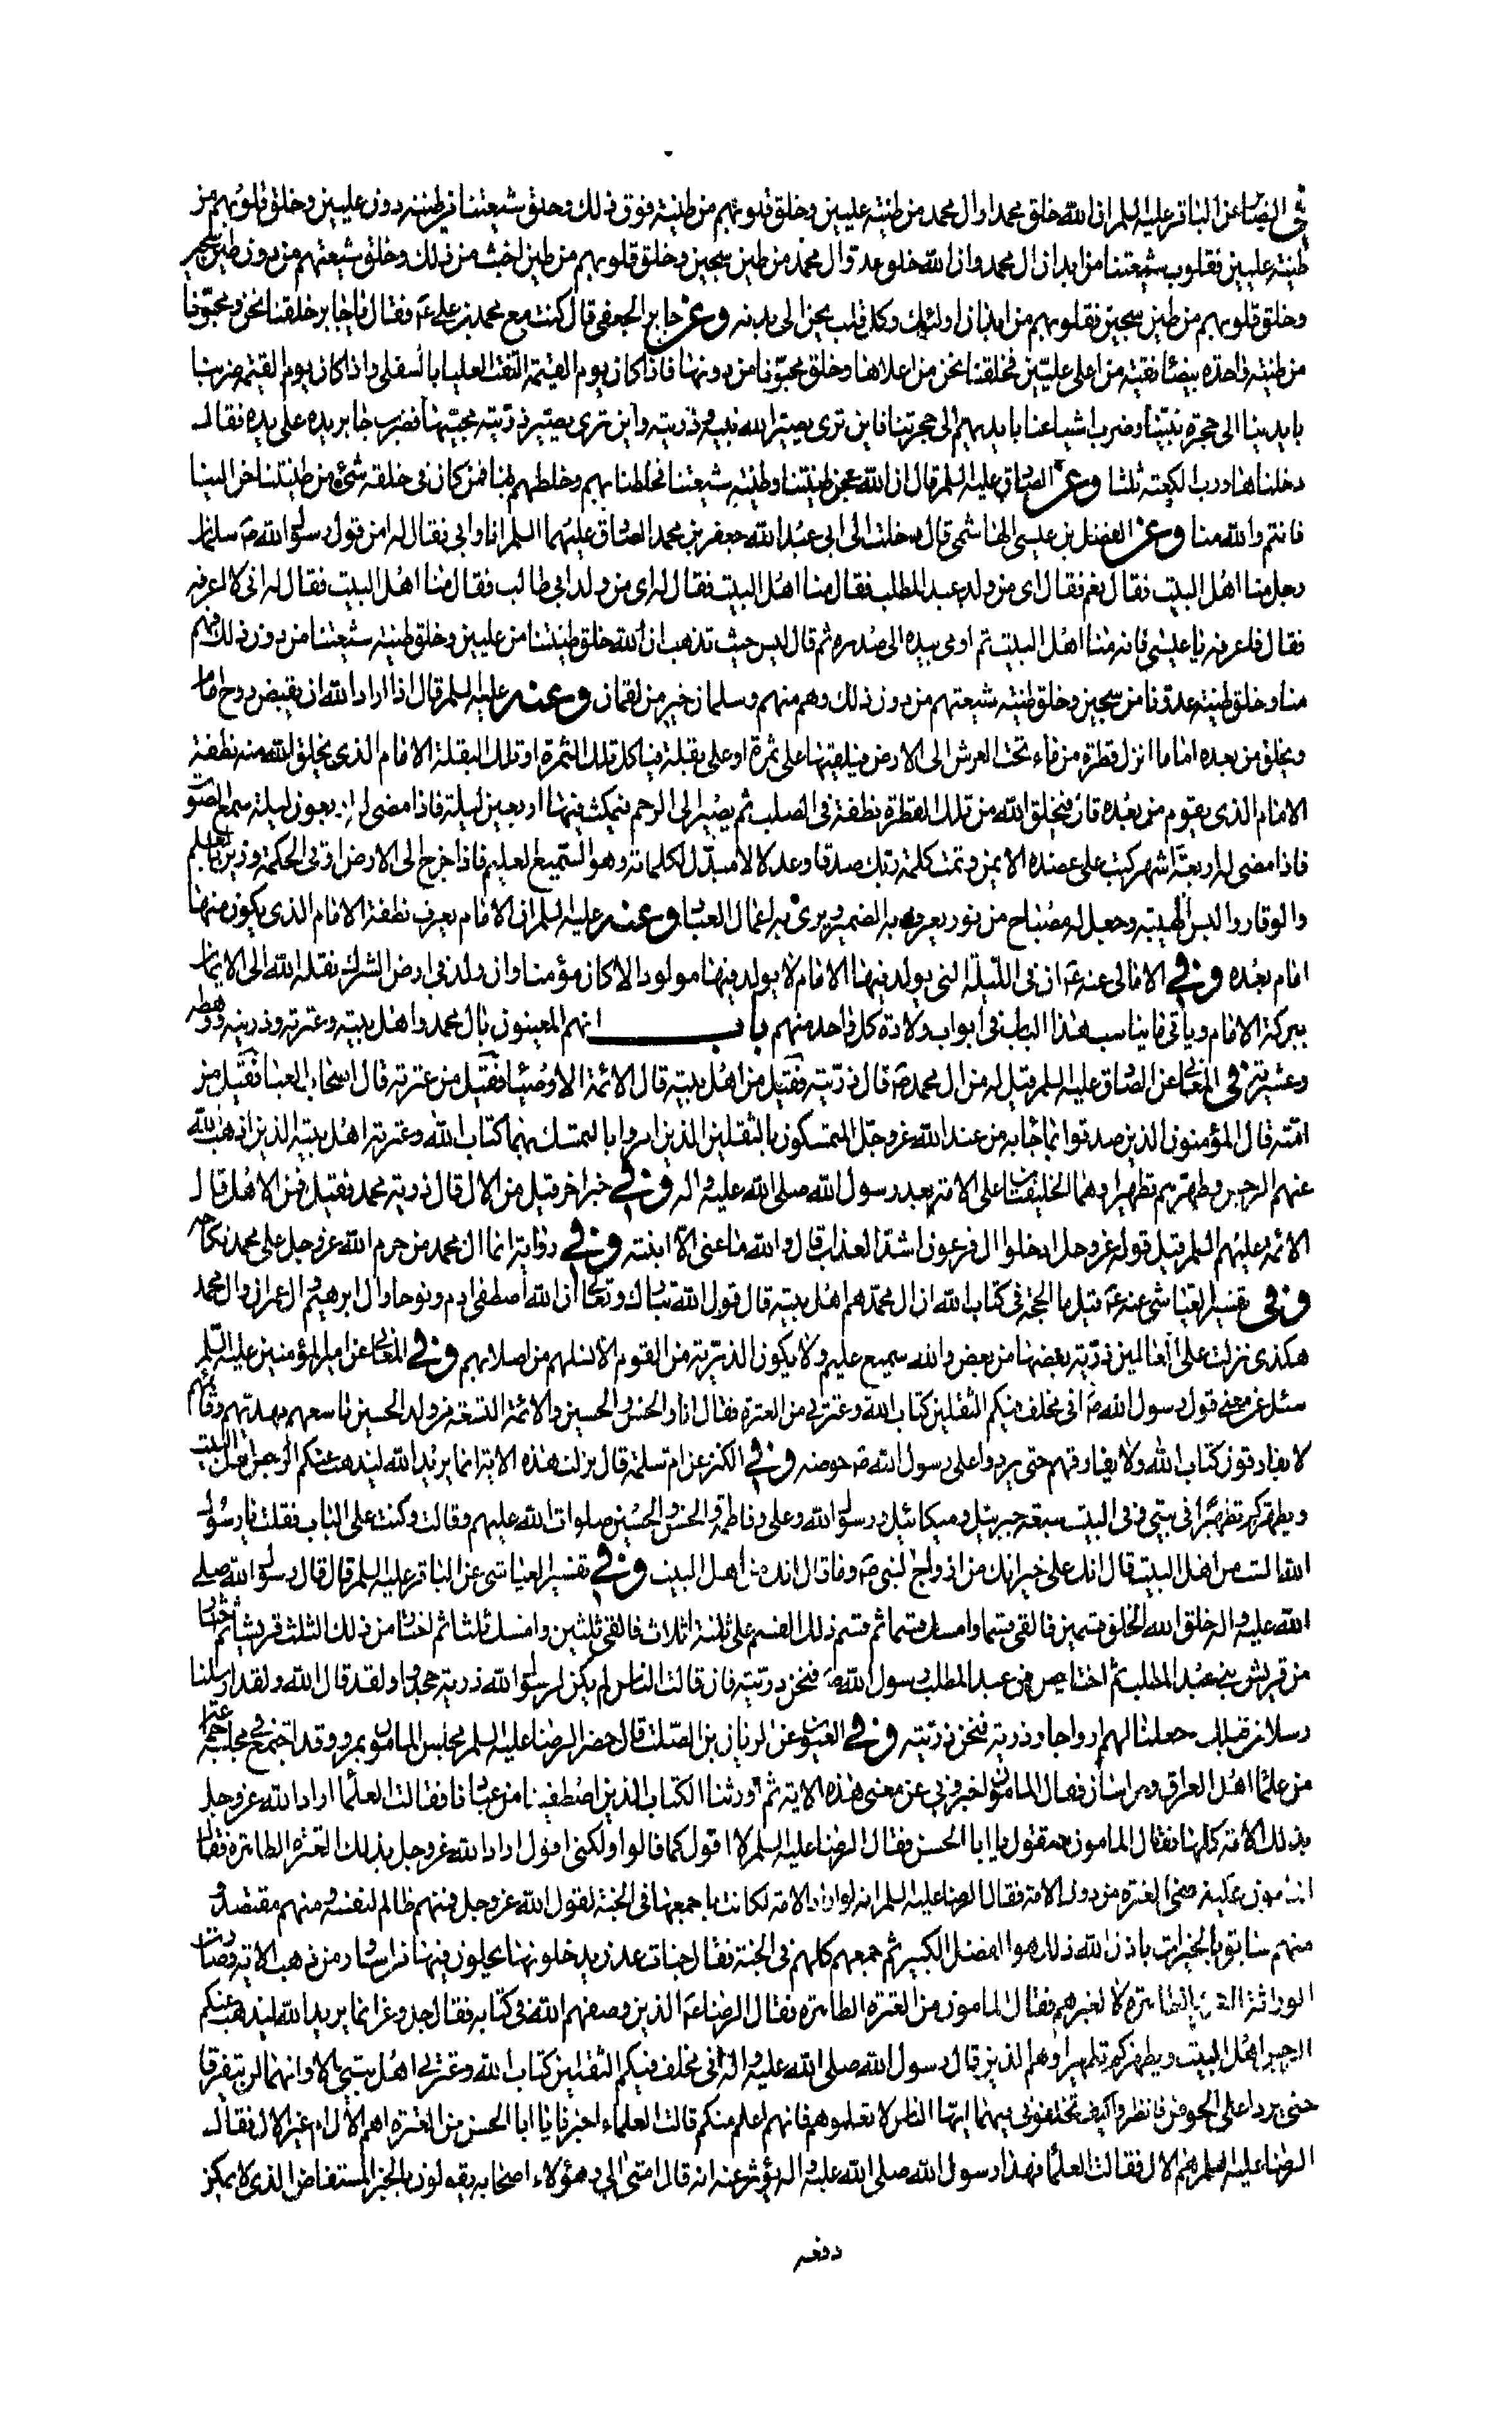 في البصائر عن الباقر عليه السلم ان الله خلق محمدا وال محمد من طينة عليين وخلق قلوبهم من طينة فوق ذلك وخلق شيعتنا من طينة دون عليين وخلق قلوبهم من
طينة عليين فقلوب شيعتنا من ابدان ال محمد وان الله خلق عدو ال محمد من طين سجين وخلق قلوبهم من طين اخبث من ذلك وخلق شيعتهم من دون طين سجين
وخلق قلوبهم من طين سجين فقلوبهم من ابدان اولئك وكل قلب يحن الى بدنه وعن جابر الجعفي قال كنت مع محمد بن علي ع فقال يا جابر خلقنا نحن ومحبونا
من طينة واحدة بيضاء نقية من اعلى عليين فخلقنا نحن من اعلاها وخلق محبونا من دونها فاذا كان يوم القيمة التفت العليا بالسفلى واذا كان يوم القيمة ضربنا
بايدينا الى حجزة نبينا وضرب اشياعنا بايديهم الى حجزتنا فاين ترى يصير الله نبيه وذريته واين ترى يصير ذريته محبيها فضرب جابر يده على يده فقال
دخلناها ورب الكعبة ثلثا وعن الصادق عليه السلم قال ان الله عجن طينتنا وطينة شيعتنا فخلطنا بهم وخلطهم بنا فمن كان في خلقه شيء من طينتنا حن الينا
فانتم والله منا وعن الفضل بن عيسى الهاشمي قال دخلت الى ابي عبد الله جعفر بن محمد الصادق عليهما السلم انا وابي فقال له امن قول رسول الله ص سلمان
رجل منا اهل البيت فقال نعم فقال اي من ولد عبد المطلب فقال منا اهل البيت فقال له اي من ولد ابي طالب فقال منا اهل البيت فقال له اني لا اعرفه
فقال فاعرفه يا عيسى فانه منا اهل البيت ثم اومى بيده الى صدره ثم قال ليس حيث تذهب ان الله خلق طينتنا من عليين وخلق طينة شيعتنا من دون ذلك فهم
منا وخلق طينة عدونا من سجين وخلق طينة شيعتهم من دون ذلك وهم منهم وسلمان خير من لقمان وعنه عليه السلم قال اذا اراد الله ان يقبض روح امام
ويخلق من بعده اماما انزل قطرة من ماء تحت العرش الى الارض فيلقيها على ثمرة او على بقلة فياكل تلك الثمرة او تلك البقلة الامام الذي يخلق الله منه نطفة
الامام الذي يقوم من بعده قال فيخلق الله من تلك القطرة نطفة في الصلب ثم يصير الى الرحم فيمكث فيها اربعين ليلة فاذا مضى له اربعون ليلة سمع الصوت
فاذا مضى له اربعة اشهر كتب على عضده الايمن وتمت كلمة ربك صدقا وعدلا لا مبدل لكلماته وهو السميع العليم فاذا خرج الى الارض اوتي الحكمة وزين بالعلم
والوقار والبس الهيبة وجعل له مصباح من نور يعرف به الضمير ويرى به اعمال العباد وعنه عليه السلم ان الامام يعرف نطفة الامام الذي يكون منها
امام بعده وفي الامالي عنه ع ان في الليلة التي يولد فيها الامام لا يولد فيها مولود الا كان مؤمنا وان ولد في ارض الشرك نقله الله الى الايمان
ببركة الامام وياتي ما يناسب هذا الباب في ابواب ولادة كل واحد منهم باب انهم المعنيون بال محمد واهل بيته وعترته وذريته ورهطه
وعشيرته في المعاني عن الصادق عليه السلم قيل له من ال محمد ص قال ذريته فقيل من اهل بيته قال الائمة الاوصياء فقيل من عترته قال اصحاب العباء فقيل من
امته قال المؤمنون الذين صدقوا بما جاء به من عند الله عز وجل المتمسكون بالثقلين الذين امروا بالتمسك بهما كتاب الله وعترته اهل بيته الذين اذهب الله
عنهم الرجس وطهرهم تطهيرا وهما الخليفتان على الامة بعد رسول الله صلى الله عليه واله وفي خبر اخر قيل من الال قال ذرية محمد فقيل فمن الاهل قال
الائمة عليهم السلم قيل قوله عز وجل ادخلوا ال فرعون اشد العذاب قال والله ما عنى الا ابنته وفي رواية انما ال محمد من حرم الله عز وجل على محمد نكاحه
وفي تفسير العياشي عنه ع قيل ما الحجة في كتاب الله ان ال محمد هم اهل بيته قال قول الله تبارك وتعالى ان الله اصطفى ادم ونوحا وال ابرهيم وال عمران وال محمد
هكذى نزلت على العالمين ذرية بعضها من بعض والله سميع عليم ولا يكون الذرية من القوم الا نسلهم من اصلابهم وفي المعاني عن امير المؤمنين عليه السلم
سئل عن معنى قول رسول الله ص اني مخلف فيكم الثقلين كتاب الله وعترتي من العترة فقال انا والحسن والحسين والائمة التسعة من ولد الحسين تاسعهم مهديهم وقائمهم
لا يفارقون كتاب الله ولا يفارقهم حتى يردوا على رسول الله ص حوضه وفي الكنز عن ام سلمة قال نزلت هذه الاية انما يريد الله ليذهب عنكم الرجس اهل البيت
ويطهركم تطهيرا في بيتي وفي البيت سبعة جبرئيل وميكائيل ورسول الله وعلي وفاطمة والحسن والحسين صلوات الله عليهم وقالت وكنت على الباب فقلت يا رسول
الله الست من اهل البيت قال انك على خير انك من ازواج النبي ص وما قال انك من اهل البيت وفي تفسير العياشي عن الباقر عليه السلم قال قال رسول الله صلى
الله عليه واله خلق الله الخلق قسمين فالقى قسما وامسك قسما ثم قسم ذلك القسم على ثلثة اثلاث فالقى ثلثين وامسك ثلثا ثم اختار من ذلك الثلث قريشا ثم اختار
من قريش بني عبد المطلب ثم اختار من بني عبد المطلب رسول الله ص فنحن ذريته فان قالت الناس لم يكن لرسول الله ذرية جحدوا ولقد قال الله ولقد ارسلنا
رسلا من قبلك وجعلنا لهم ازواجا وذرية فنحن ذريته وفي العيون عن الريان بن الصلت قال حضر الرضا عليه السلم مجلس المامون بمرو وقد اجتمع في مجلسه جماعة
من علماء اهل العراق وخراسان فقال المامون اخبروني عن معنى هذه الاية ثم اورثنا الكتاب الذين اصطفينا من عبادنا فقالت العلماء اراد الله عز وجل
بذلك الامة كلها فقال المامون ما تقول يا ابا الحسن فقال الرضا عليه السلم لا اقول كما قالوا ولكني اقول اراد الله عز وجل بذلك العترة الطاهرة فقال
المامون وكيف عنى العترة من دون الامة فقال الرضا عليه السلم انه لو اراد الامة لكانت باجمعها في الجنة لقول الله عز وجل فمنهم ظالم لنفسه ومنهم مقتصد و
منهم سابق بالخيرات باذن الله ذلك هو الفضل الكبير ثم جمعهم كلهم في الجنة فقال جنات عدن يدخلونها يحلون فيها من اساور من ذهب الاية فصارت
الوراثة للعترة الطاهرة لا لغيرهم فقال المامون من العترة الطاهرة فقال الرضا ع الذين وصفهم الله في كتابه فقال جل وعز انما يريد الله ليذهب عنكم
الرجس اهل البيت ويطهركم تطهيرا وهم الذين قال رسول الله صلى الله عليه واله اني مخلف فيكم الثقلين كتاب الله وعترتي اهل بيتي الا وانهما لن يتفرقا
حتى يردا على الحوض فانظروا كيف تخلفوني فيهما ايها الناس لا تعلموهم فانهم اعلم منكم قالت العلماء اخبرنا يا ابا الحسن من العترة اهم الال ام غير الال فقال
الرضا عليه السلم هم الال فقالت العلماء فهذا رسول الله صلى الله عليه واله يؤثر عنه انه قال امتي الي وهؤلاء اصحابه يقولون بالخبر المستفاض الذي لا يمكن
دفعه